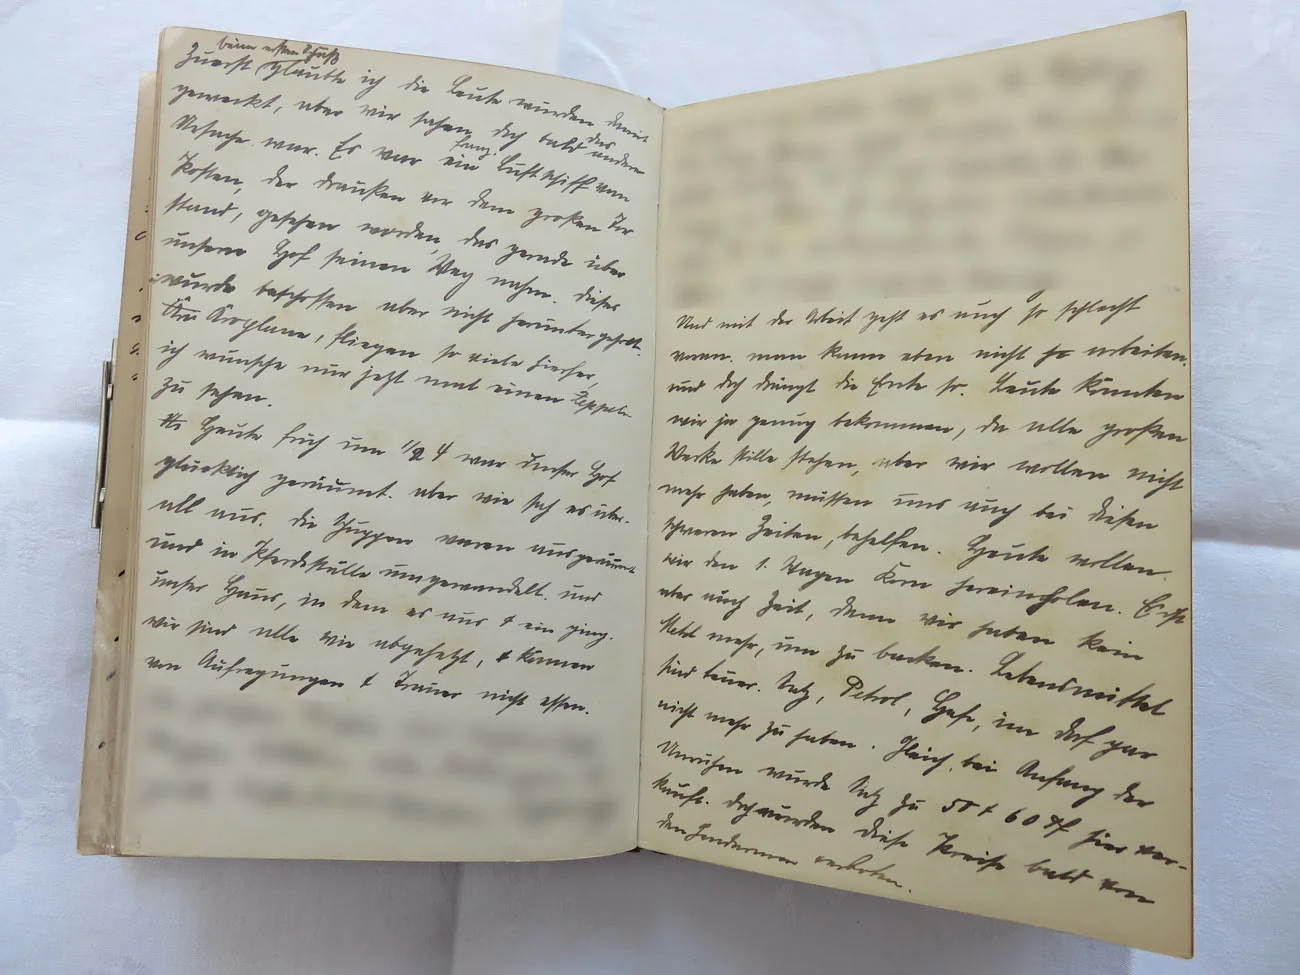 beim ersten Schuß
Zuerst glaubte ich die Leute wurden damit
geweckt, aber wir sahen doch bald das andere
Ursache war. Es war ein franz. Luftschiff vom
Posten, der draußen vor dem großen Tor
stand, gesehen worden, das gerade über
unsern Hof seinen Weg nahm. Dieses
wurde beschossen aber nicht heruntergeholt.
Aroplane, fliegen so viele hierher,
ich wünsche nur jetzt mal einen Zeppelin
zu sehen.
Heute früh um 1/2 4 war unser Hof
glücklich geräumt. aber wie sah es über-
all aus. die Schuppen waren ausgeräumt
und in Pferdeställe umgewandelt. und
unser Haus, in dem es aus & ein ging.
wir sind alle wie abgehetzt, & können
vor Aufregungen & Trauer nicht essen.
Und mit der Arbeit geht es auch so schlecht
voran. man kann eben nicht so arbeiten.
und doch drängt die Ernte so. Leute könnten
wir ja genug bekommen, da alle großen
Werke stille stehen, aber wir wollen nicht
mehr haben, müssen uns auch bei diesen
schweren Zeiten, behelfen. Heute wollen
wir den 1. Wagen Korn hereinholen. Erst
aber auch Zeit, denn wir haben kein
Mehl mehr, um zu backen. Lebensmittel
sind teuer. Salz, Petrol, Hefe, im Dorf gar
nicht mehr zu haben. Gleich bei Anfang der
Unruhen wurde Salz zu 50 & 60 Pf hier ver-
kauft. doch wurden diese Preise bald von
den Gendarmen verboten.